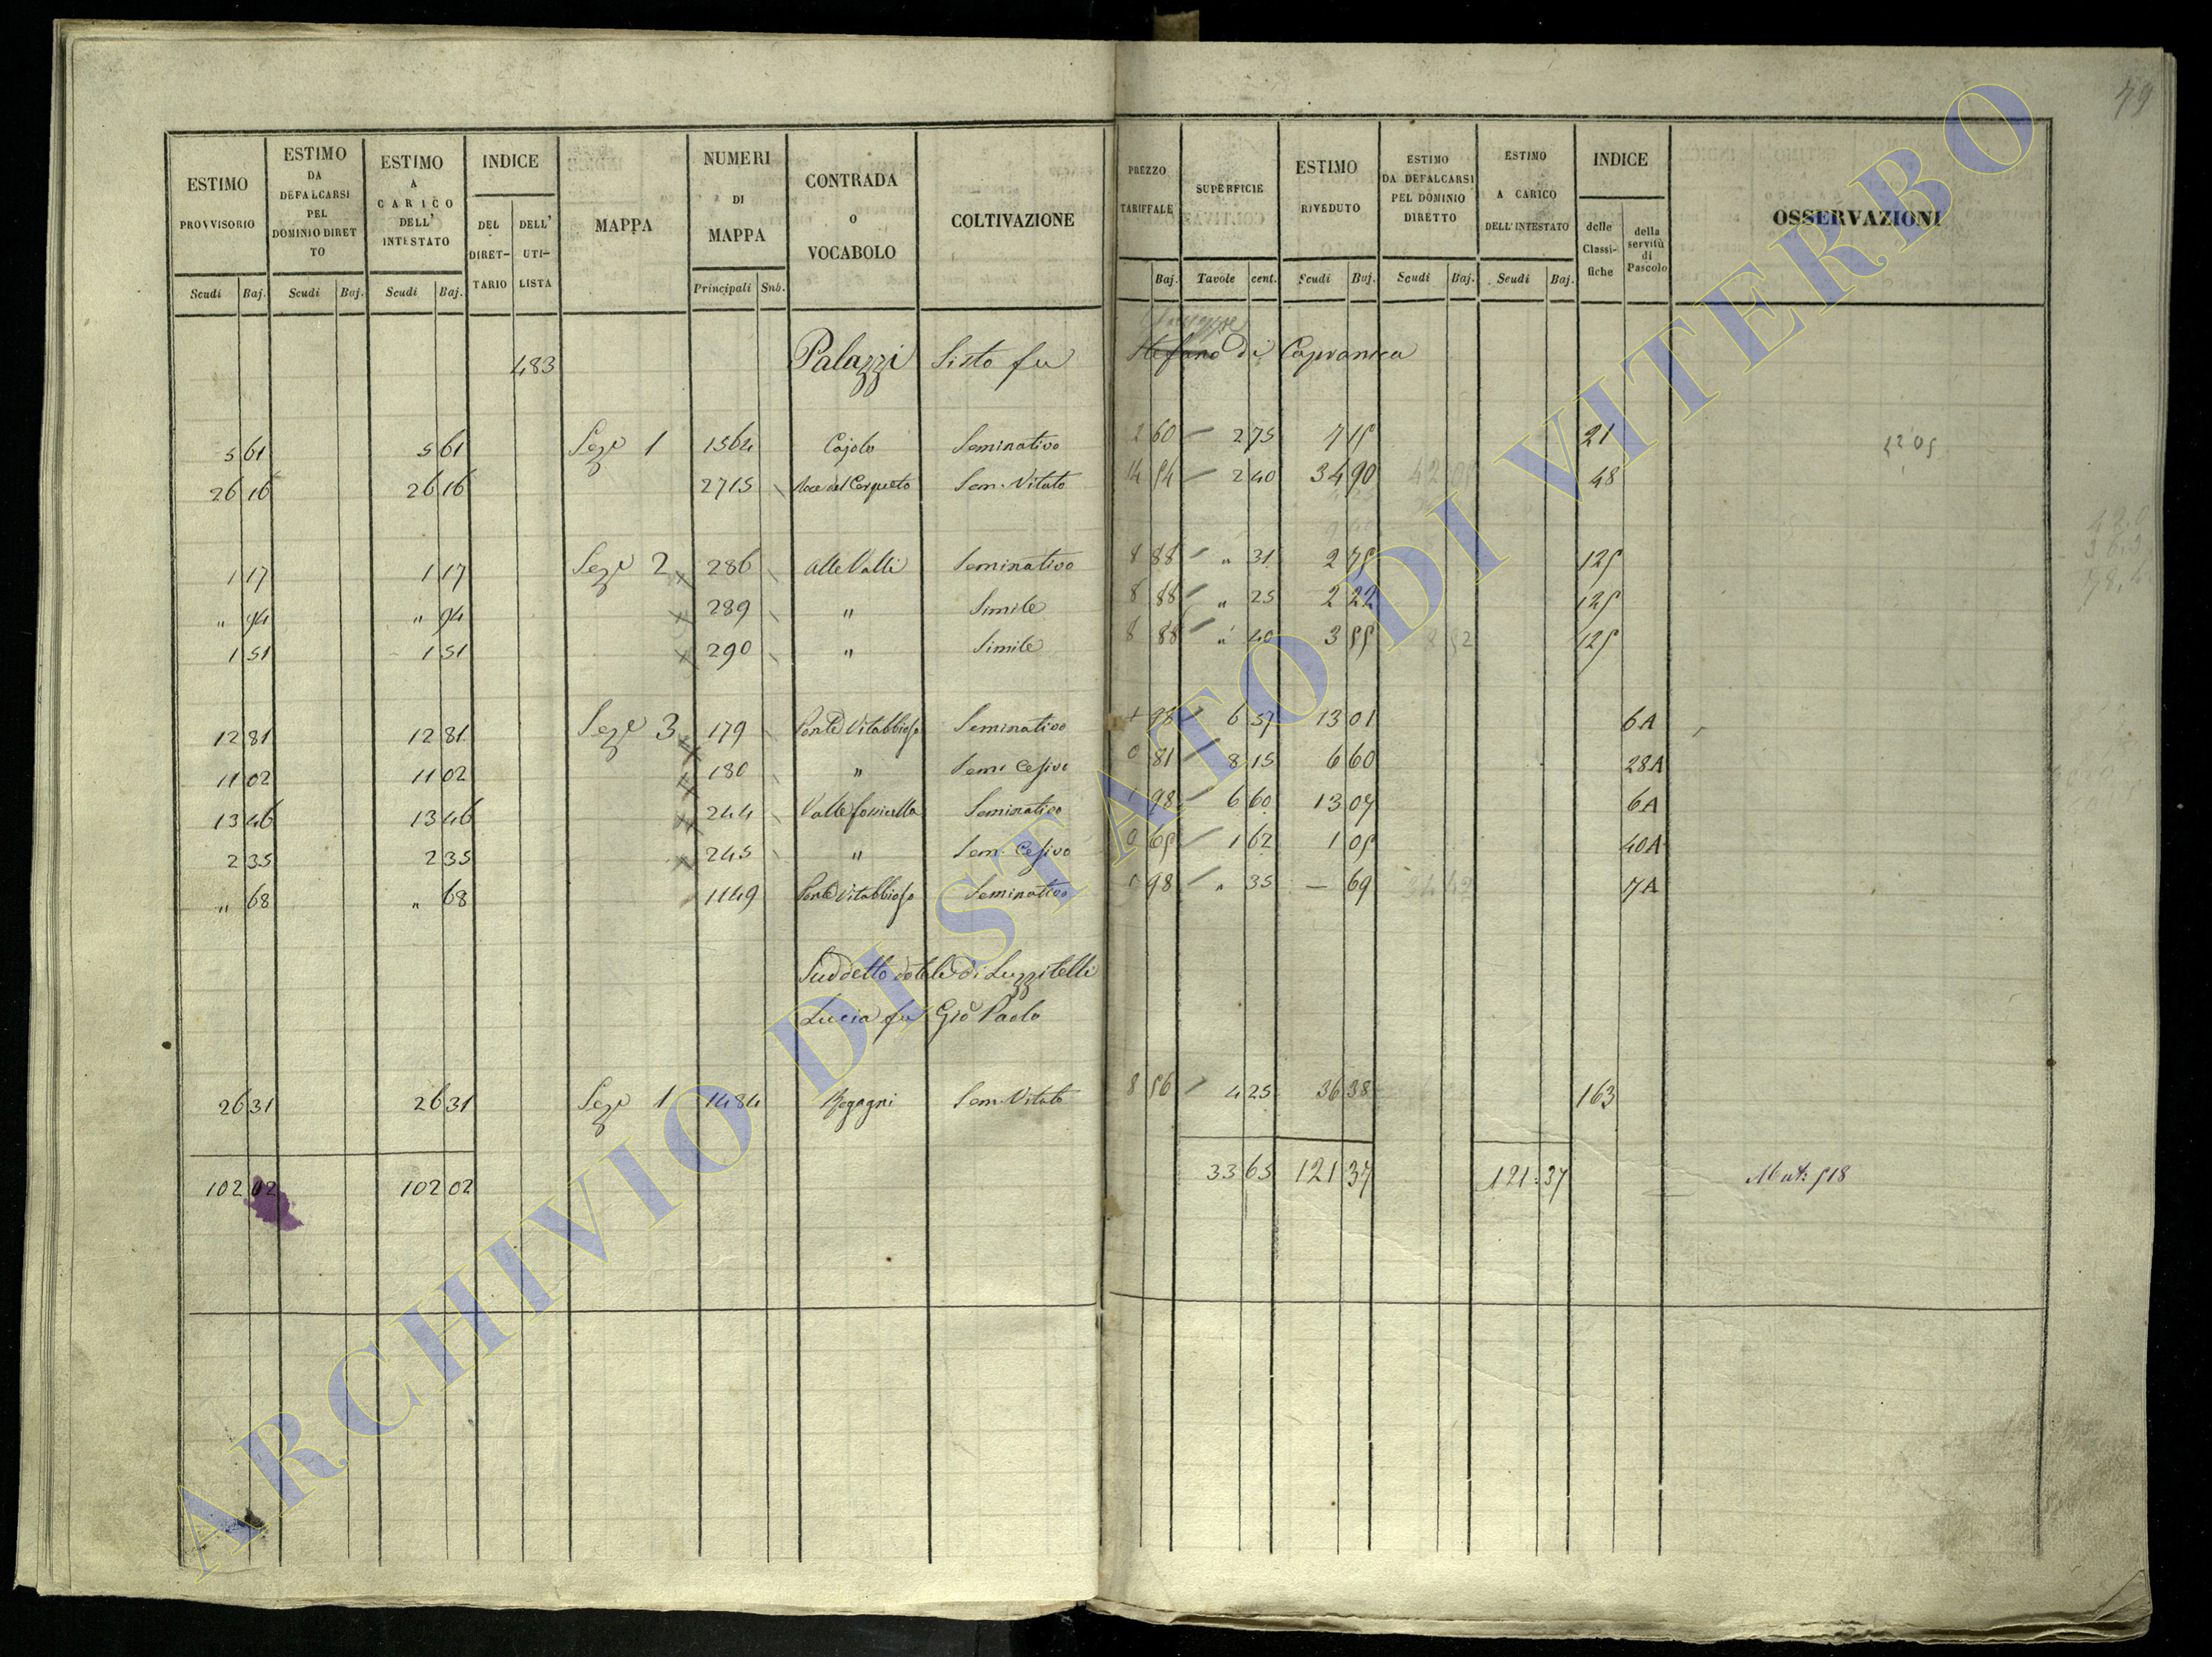 79
ESTIMO PROVVISORIO Scudi Baj.
ESTIMO DA DEFALCARSI PEL DOMINIO DIRETTO Scudi Baj.
ESTIMO A CARICO DELL' INTESTATO Scudi Baj.
INDICE DEL DIRET-TARIO DELL' UTI-LISTA
MAPPA
NUMERI DI MAPPA Principali Sub.
CONTRADA o VOCABOLO
COLTIVAZIONE
PREZZO TARIFFALE Baj.
SUPERFICIE Tavole cent.
ESTIMO RIVEDUTO Scudi Baj.
ESTIMO DA DEFALCARSI PEL DOMINIO DIRETTO Scudi Baj.
ESTIMO A CARICO DELL'INTESTATO Scudi Baj.
INDICE delle Classi-fiche della servitù di Pascolo
OSSERVAZIONI
Giuseppe
483 Palazzi Sisto fu Stefano di Capranica
5 61 5 61 Seze 1 1564 Cajolo Seminativo 2 60 2 75 7 15 21 42 05
26 16 26 16 2715 Noce del Cerqueto Sem. Vitato 14 54 2 40 34 90 42 05 48
1 17 1 17 Seze 2 286 alle Valli Seminativo 8 88 " 31 2 75 125
" 94 " 94 289 " Simile 8 88 " 25 2 22 125
1 51 1 51 290 " Simile 8 88 " 40 3 55 8 52 125
12 81 12 81 Seze 3 179 Ponte Vitabbioso Seminativo 1 98 6 57 13 01 6A
11 02 11 02 180 " Sem. Cesivo 0 81 8 15 6 60 28A
13 46 13 46 244 Valle fornicella Seminativo 1 98 6 60 13 07 6A
2 35 2 35 245 " Sem. Cesivo 0 65 1 62 1 05 40A
" 68 " 68 1149 Ponte Vitabbioso Seminativo 1 98 " 35 — 69 34 42 7A
Suddetto dotale di Luzzitelli
Lucia fu Gio Paolo
26 31 26 31 Seze 1 1484 Sem. Vitato 8 56 4 25 36 38 163
102 02 102 02 33 65 121 37 121:37 Mut: 518
ARCHIVIO DI STATO DI VITERBO